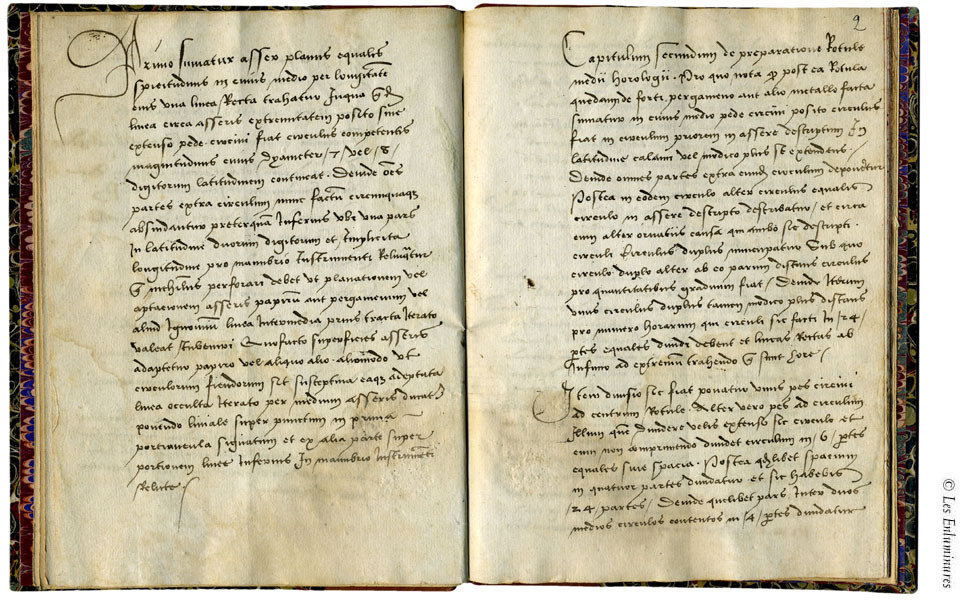 Primo sumatur asser planus equalis
spissitudinis in cuius medio per longitudinem
eius una linea Recta trahatur In qua
linea circa asseris extremitatem posito sive
extenso pede circini fiat circulus competentis
magnitudinis cuius dyameter /7/ vel /8/
digitorum latitudinem contineat. Deinde oes
partes extra circulum nunc factum circumquaque
abscindantur preterquam Inferius ubi una pars
In latitudine duorum digitorum et
longitudine pro manubrio Instrumenti
nichilus perforari debet ut planationem vel
asseris papirum aut pergamenum vel
aliud linea Intermedia prius tracta Iterato
valeat Quo facto superficies asseris
adaptetur papiro vel aliquo alio ut
circulorum fiendorum sit susceptiva adaptata
linea occulta Iterato per medium asseris
ponendo lineale super punctum in prima
portiuncula signatum et ex alia parte super
portionem linee Inferius In manubrio Instrumenti
relicte /
2
Capitulum secundum de preparatione Rotule
medii horologii. Pro quo nota post ea Rotula
quedam de forti pergameno aut alio metallo facta
sumatur in cuius medio pede circini posito circulus
fiat in circulum priorem in assere descriptum In
latitudine calami vel modico plus se extendens /
Deinde omnes partes extra eundem circulum deponetur
Postea in eodem circulo alter circulus equalis
circulo in assere descripto describatur / et circa
eum alter ornatus causa qui ambo sic descripti
circuli Circulus duplus nuncupatur Sub quo
circulo duplo alter ab eo parum distans circulus
pro quantitatibus graduum fiat / Deinde Iterum
unus circulus duplus tamen modico plus distans
pro numero horarum qui circuli sic facti In /24/
ptes equales dividi debent et lineas Rectas ab
Infimo ad extremum trahendo sunt hore /
Item divisio sic fiat ponatur unus pes circini
ad centrum Rotule. Alter vero pes ad circulum
Illum quem dividere velis extenso sic circulo et
eum non comprimendo dividet circulum in /6/ ptes
equales sive spacia. Postea quodlibet spacium
in quatuor partes dividatur et sic habebis
24 partes / Deinde quelibet pars Inter duos
medios circulos contentos in /4/ ptes dividatur
© Les Enluminures